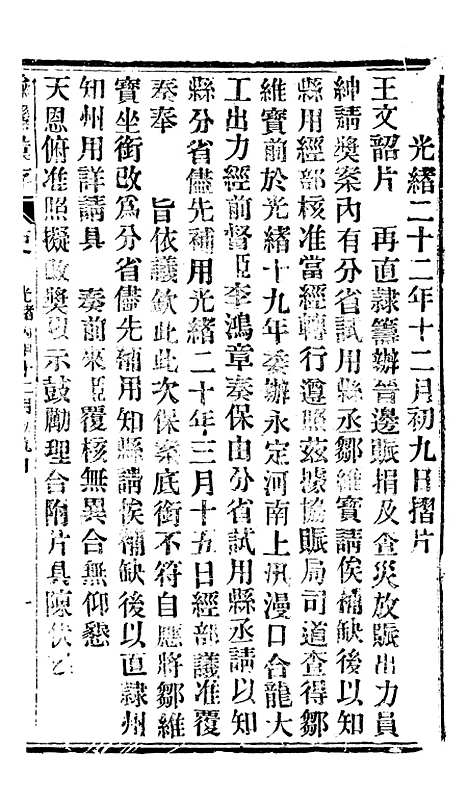 光緒二十二年十二月初九日摺片
王文韶片　再直隸籌辦晉邊賑捐及查災放賑出力員
紳請獎案內有分省試用縣丞鄒維寶請俟補缺後以知
縣用經部核准當經轉行遵照茲據協賑局司道查得鄒
維寶前於光緒十九年委辦永定河南上汛漫口合龍大
工出力經前督臣李鴻章奏保由分省試用縣丞請以知
縣分省儘先補用光緒二十年三月十五日經部議准覆
奏奉　旨依議欽此此次保案底銜不符自應將鄒維
寶坐銜改爲分省儘先補用知縣請俟補缺後以直隸州
知州用詳請具　奏前來臣覆核無異合無仰懇
天恩俯准照擬改獎以示鼓勵理合附片具陳伏乞
諭摺彙存
光緒
一